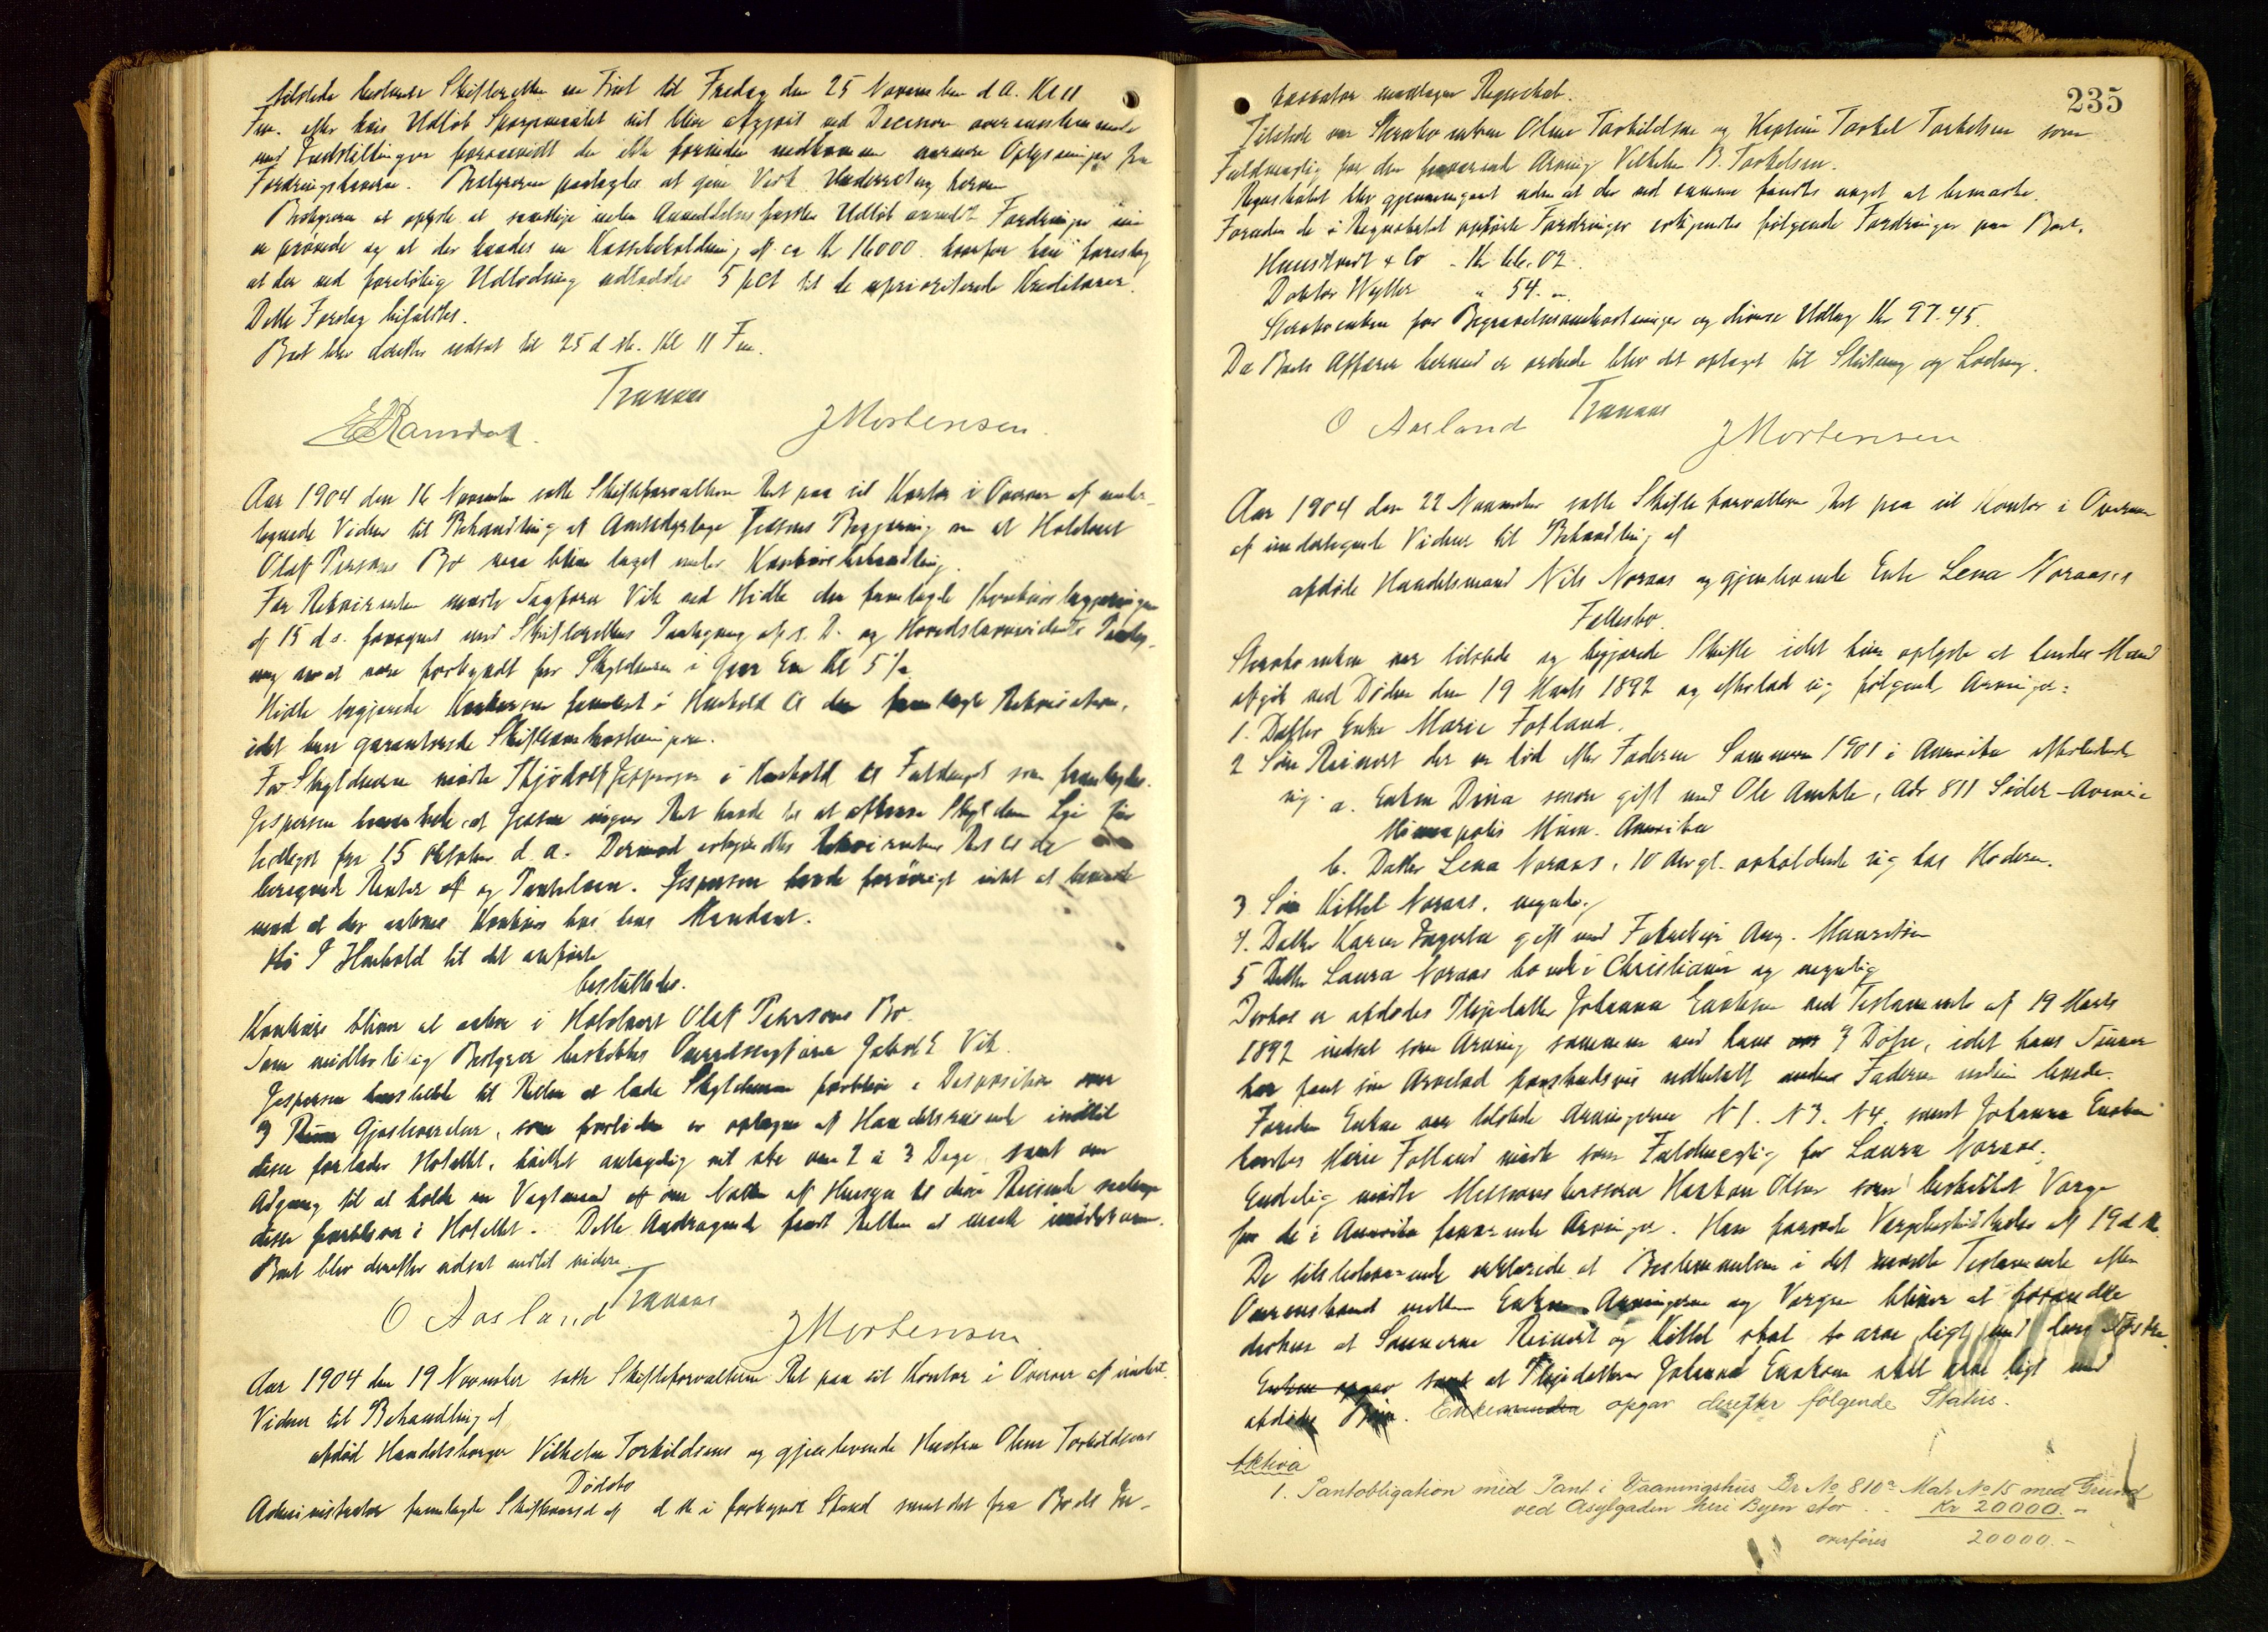 tilstede besluttede Skifteretten en Frist til Fredag den 25 November d A. Kl 11
Fm. efter hvis Udløb Spørgsmaalet vil blive afgjort ved Decision overensstemmende
med Indstillingen forsaavidt der ikke forinden nedkommer nærmere Oplysninger fra
Fordringshaverne. Bestyreren paalagdes at give Vedk. Underretning herom
Bestyreren oplyste at samtlige inden Anmeldelsesfristens Udløb anmeldte Fordringer nu
er prøvede og at der havdes en Kassebeholdning af ca Kr 16000 hvorfor han foreslog
at der ved foreløbig Udlodning udloddes 5 pCt til de uprioriterede Kreditorer.
Dette Forslag bifaldtes.
Boet blev derefter udsat til 25 d M. Kl 11 Fm.
Tranaas
Ramsdal. JMortensen.
Aar 1904 den 16 November satte Skifteforvalteren Ret paa sit Kontor i Overvær af under-
tegnede Vidner til Behandling af Begjæring om at Hotelvært
Olaf Petersons Bo maa blive taget under Konkursbehandling.
For Rekvirenten mødte Sagfører Vik ved Hidle der fremlagde Konkursbegjæringen
af 15 ds. forsynet med Skifterettens Paategning af s. D. og Hovedstævnevidnets Paateg-
ning om at være forkyndt for Skyldneren i Gaar Em Kl 5 ½
Hidle begjærede Konkursen fremmet i Henhold til den fremlagte Rekvisition,
idet han garanterede Skifteomkostningerne.
For Skyldneren mødte Thjodolf Jespersen i Henhold til Fuldmagt som fremlagdes.
Jespersen bemærkede, at ingen Ret havde til at afkræve Skyldneren Leje for
Hotellet for 15 Oktober d. a. Dermod erkjendtes Rekvirentens Ret til de
beregnede Renter af og Panteloven. Jespersen havde forøvrigt intet at bemærke
mod at der aabnes Konkurs hos hans Mandant.
I Henhold til det anførte
besluttedes.
Konkurs bliver at aabne i Hotelvært Olaf Petersons Bo.
Som midlertidig Bestyrer beskikkes Overretssagfører Jakob E Vik.
Jespersen henstillede til Retten at lade Skyldneren forblive i Disposition over
9 Gjæsteværelser, som fortiden er optagne af Handelsreisende indtil
disse forlader Hotellet, hvilket antagelig vil ske om 2 à 3 Dage samt om
Adgang til at holde en Vagtmand om Natten af Hensyn til disse Reisende saalænge
disse forbliver i Hotellet. Dette Andragende fandt Retten at maatte imødekomme.
Boet blev derefter udsat indtil videre
Tranaas
O Aasland JMortensen
Aar 1904 den 19 November satte Skifteforvalteren Ret paa sit Kontor i Overvær af undert.
Vidner til Behandling af
afdød Handelsborger Vilhelm Torkildsens og gjenlevende Hustru Oline Torkildsens
Dødsbo
Administrator fremlagde d M i forkyndt Stand samt det fra Boets In-
235
kassator modtagne Regnskab.
Tilstede var Sterbo enken Oline Torkildsen og Kaptein Torkel Torkelsen som
Fuldmægtig for den fraværende Arving Vilhelm B. Torkelsen.
Regnskabet blev gjennemgaaet uden at der ved samme fandtes noget at bemærke.
Foruden de i Regnskabet opførte Fordringer erkjendtes følgende Fordringer paa Boet.
Haustvedt & Co - Kr 66.02.
Doktor Wyller " 54. "
Sterboenken for Begravelsesomkostninger og diverse Udlæg Kr 97.45.
Da Boets Affærer hermed er ordnede blev det optaget til Slutning og Lodning.
Tranaas
O Aasland JMortensen
Aar 1904 den 22 November satte Skifteforvalteren Ret paa sit Kontor i Overvær
af undertegnede Vidner til Behandling af
afdøde Handelsmand Nils Noraas og gjenlevende Enke Lena Noraas's
Fællesbo.
Sterboenken var tilstede og begjærede Skifte idet hun oplyste at hendes Mand
afgik ved Døden den 19 Marts 1892 og efterlod sig følgende Arvinger:
1. Datter Enke Marie Fotland.
2 Søn Reinert der er død efter Faderen Sommeren 1901 i Amerika efterladende
sig. a. Enken Dina senere gift med Ole Amble, Adr 811 Sider-Avenie
Minneapolis Minn. Amerika
b. Datter Lena Noraas, 10 Aar gl. opholdende sig hos Moderen.
3 Søn Kittel Noraas, myndig
4. Datter Karen gift med Fabrikeier Aug. Mauritzen
5 Datter Laura Noraas boende i Christiania og myndig
Derhos er afdødes Plejedatter Johanna Enoksen ved Testamente af 19 Marts
1892 indsat som Arving sammen med hans 3 Døtre, idet hans Sønner
har faaet sin Arvelod forskudsvis udbetalt medens Faderen endnu levede.
Foruden Enken var tilstede Arvingerne N 1. N 3. N 4. samt Johanna Enoksen
hvorhos Marie Fotland mødte som Fuldmægtig for Laura Noraas.
Endelig mødte Missionsbestyrer Haakon Olsen som beskikket Værge
for de i Amerika fraværende Arvinger. Han foreviste Værgebeskikkelse af 19 d M.
De tilstedeværende erklærede at Bestemmelsen i det nævnte Testamente efter
Overenskomst mellem Enken Arvingerne og Værgen bliver at forandre
derhen at Sønnerne Reinert og Kittel skal arve ligt med sine Søstre
Enken opgav samt at Plejedatteren Johanna Enoksen skal arve ligt med
afdødes Børn. Enkemanden opgav derefter følgende Status.
Aktiva
1. Pantobligation med Pant i Vaaningshus Br No 810a Matr No 15 med Grund
ved Asylgaden heri Byen stor Kr 20000. "
overføres 20000. -